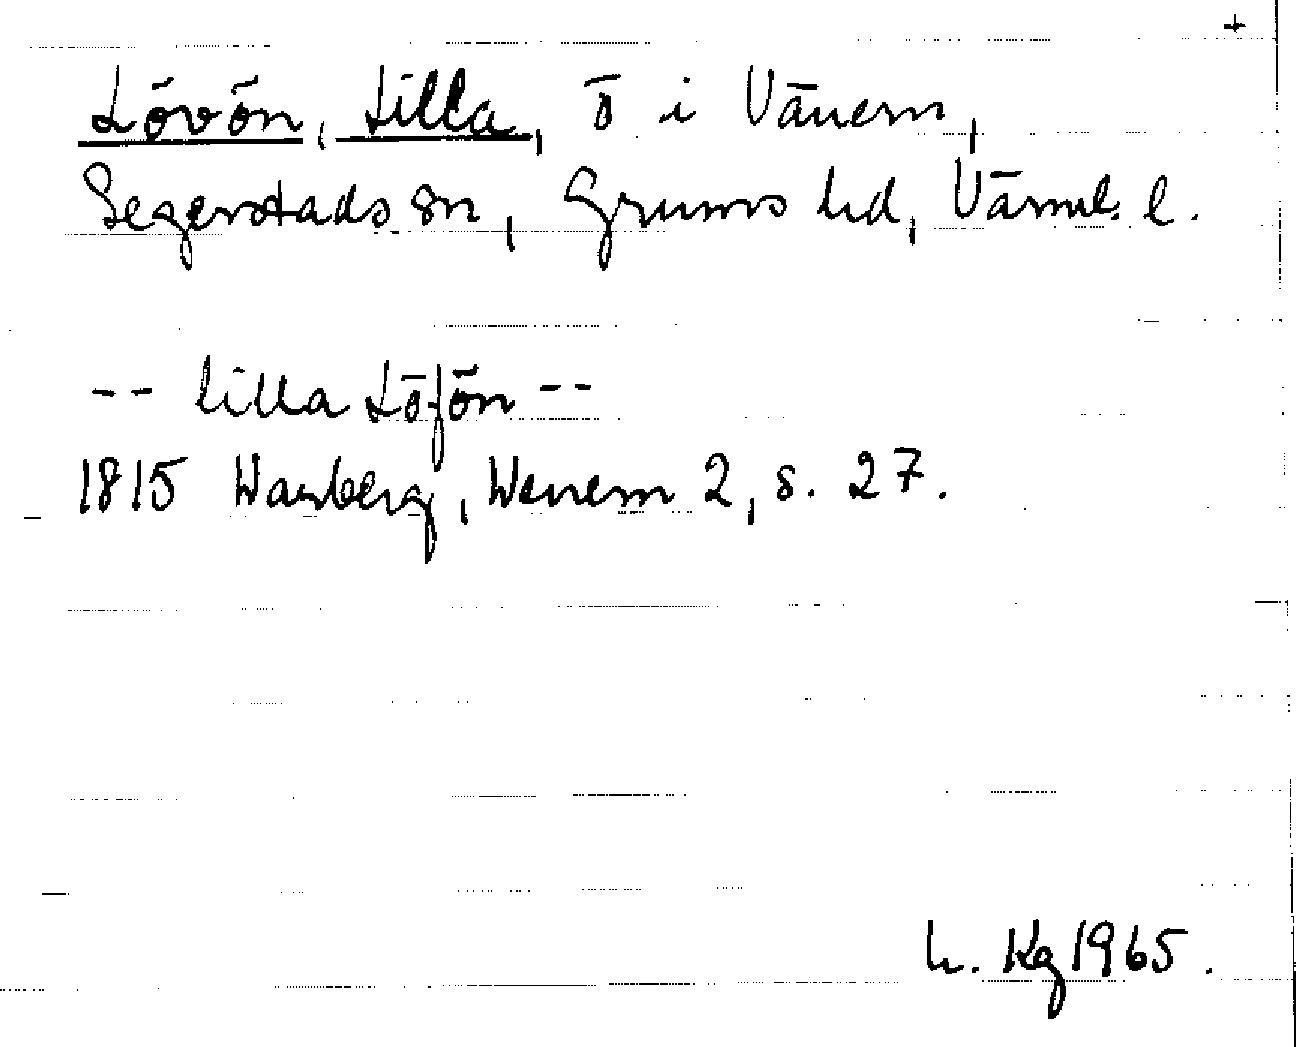 +
Lövön, Lilla, ö i Vänern,
Segerstads sn, Grums hd, Värml. l.
-- lilla Löfön --
1815 Warberg, Wenern 2, s. 27.
L. Kg 1965.